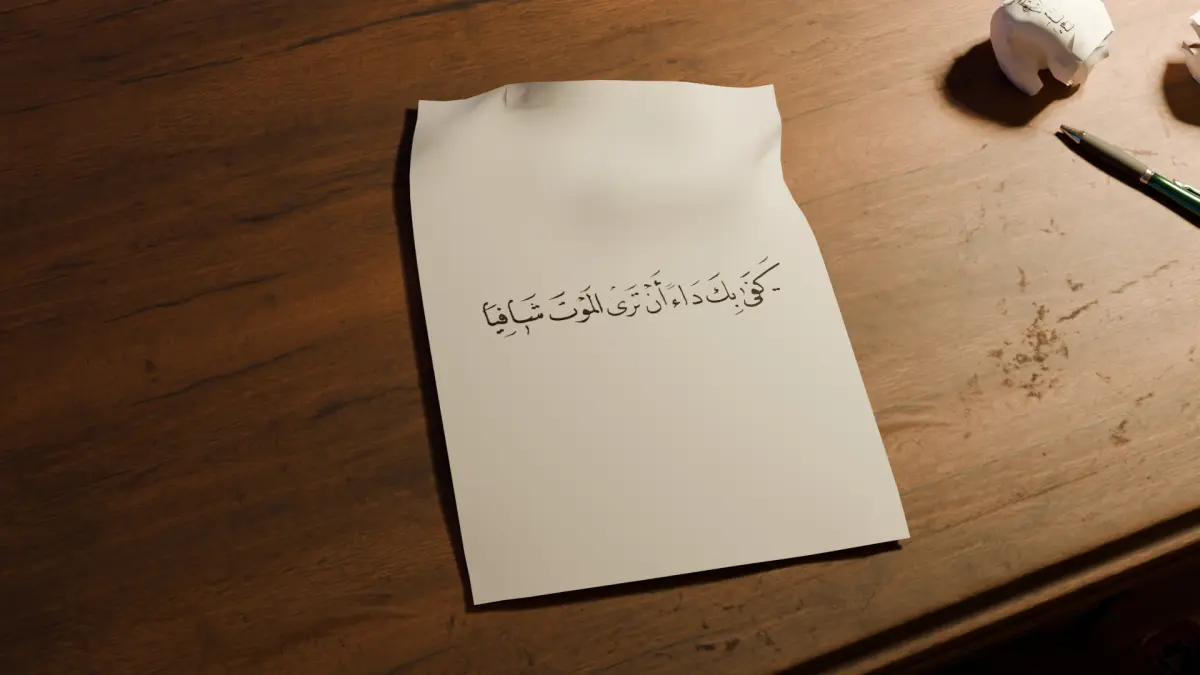 - كَفَىٰ بِكَ دَاءً أَنْ تَرَىٰ المَوْتَ شَافِيَاً